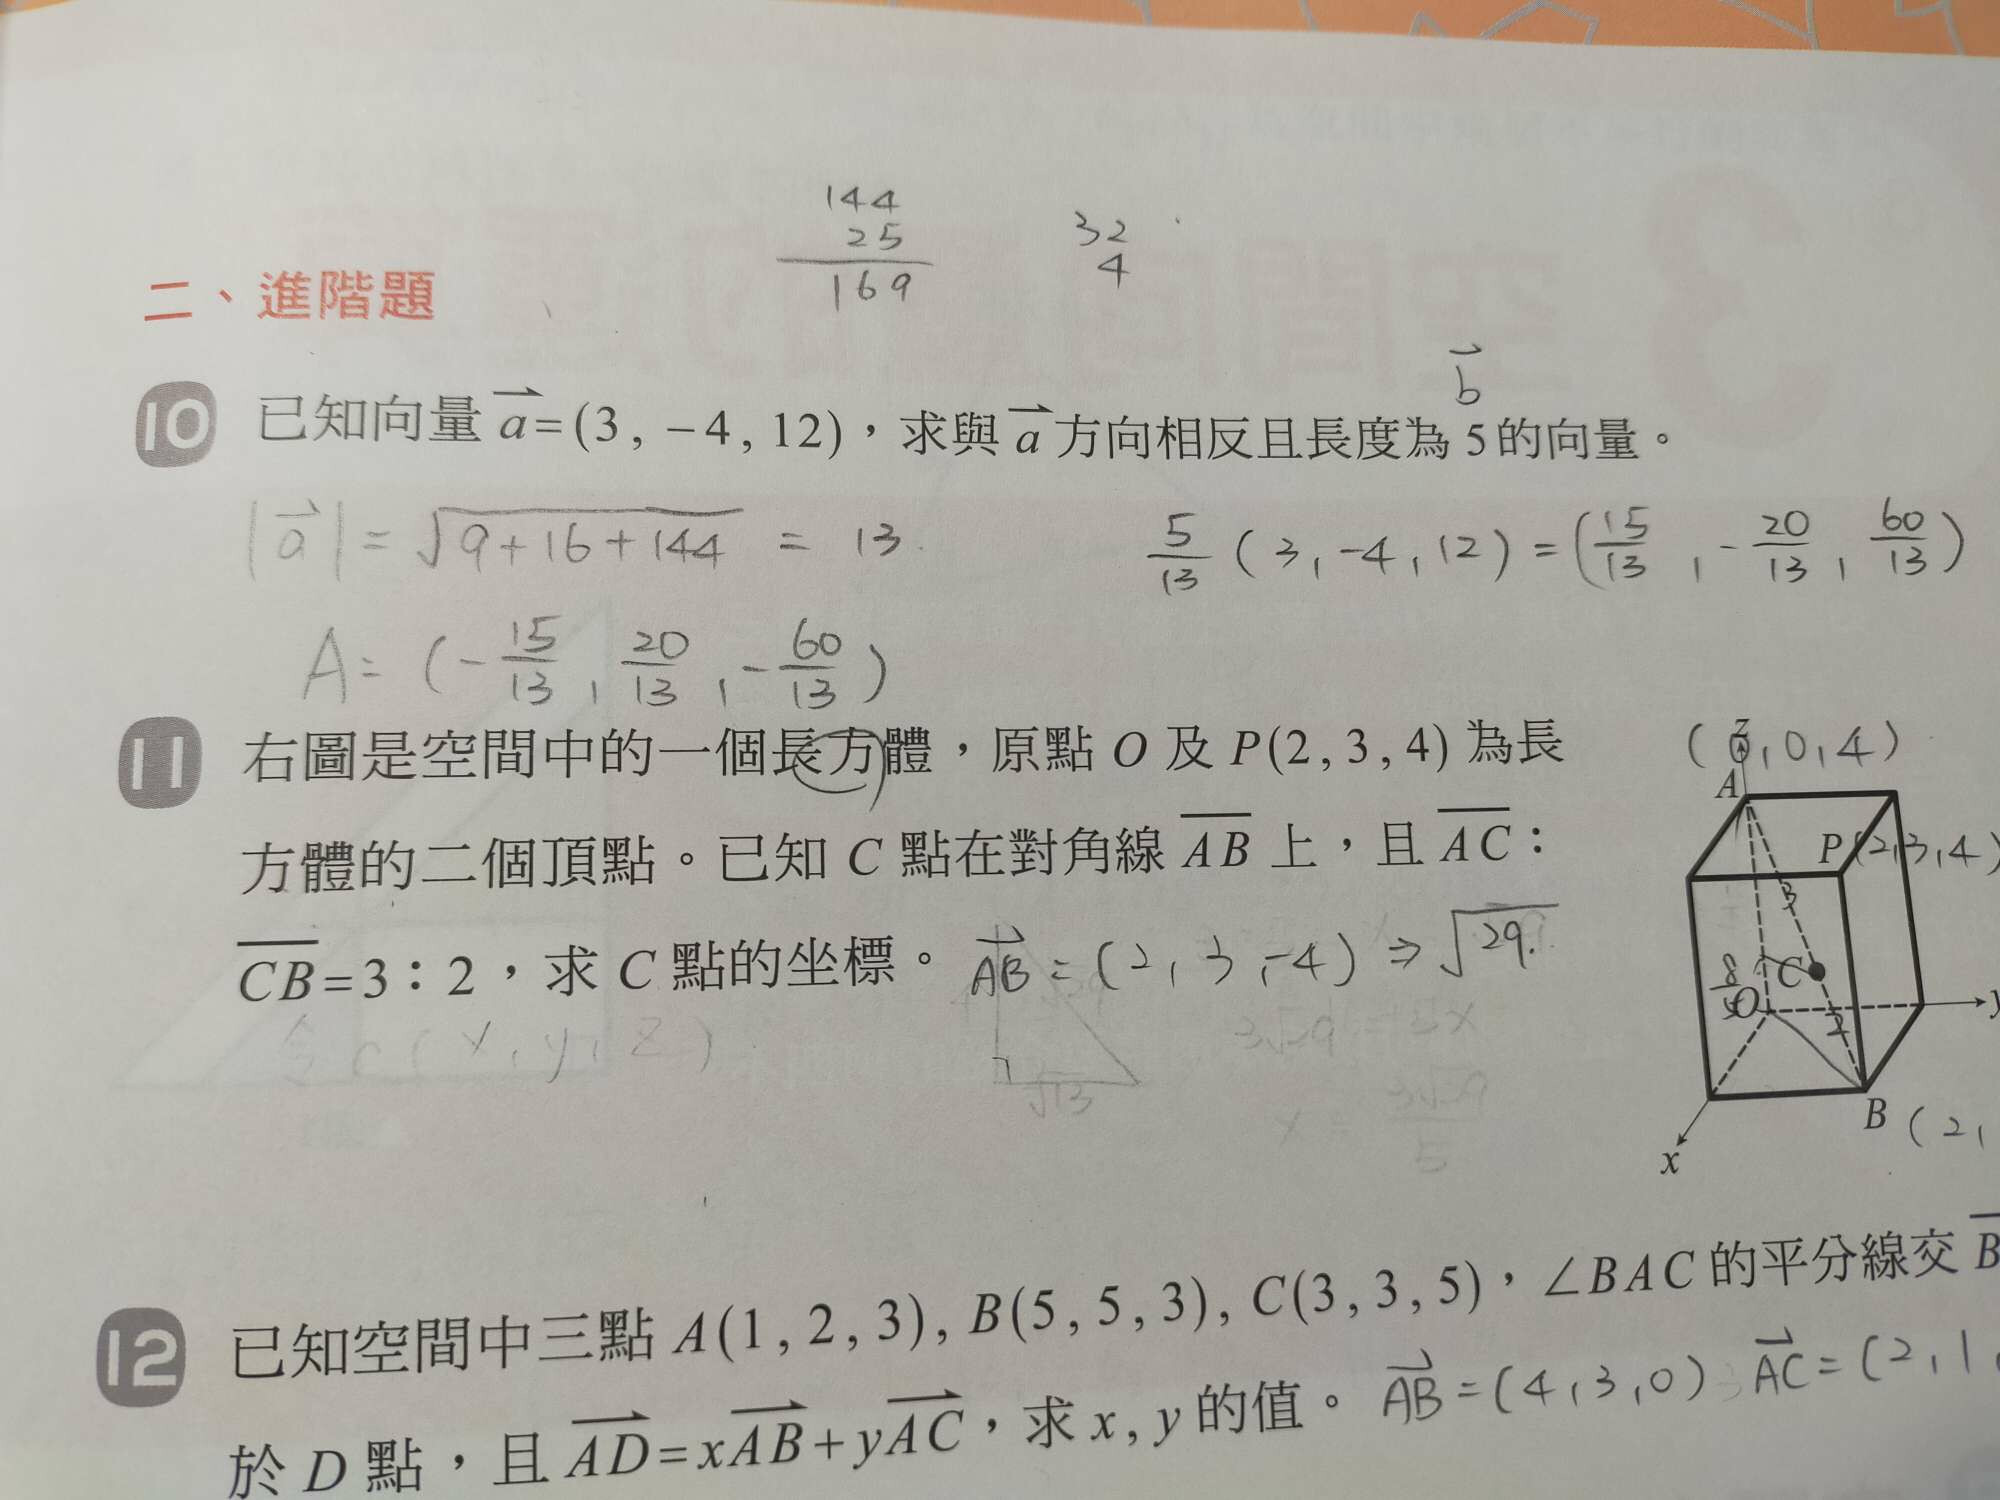 144
25
169
32
4
二、進階題
b
10 已知向量 a=(3, -4, 12),求與 a 方向相反且長度為 5 的向量。
|a| = √9+16+144 = 13
5/13 (3, -4, 12) = (15/13, -20/13, 60/13)
A = (-15/13, 20/13, -60/13)
11 右圖是空間中的一個長方體,原點 O 及 P(2, 3, 4) 為長
方體的二個頂點。已知 C 點在對角線 AB 上,且 AC:
CB=3:2,求 C 點的坐標。 AB = (2, 3, -4) ⇒ √29
令 C(x, y, z)
√13
3√29 = 5x
x = 3√29/5
z
(0, 0, 4)
A
P (2, 3, 4)
3
C
8/5
O
2
y
B (2,
x
12 已知空間中三點 A(1, 2, 3), B(5, 5, 3), C(3, 3, 5),∠BAC 的平分線交 B
於 D 點,且 AD=xAB+yAC,求 x, y 的值。 AB = (4, 3, 0) AC = (2, 1,